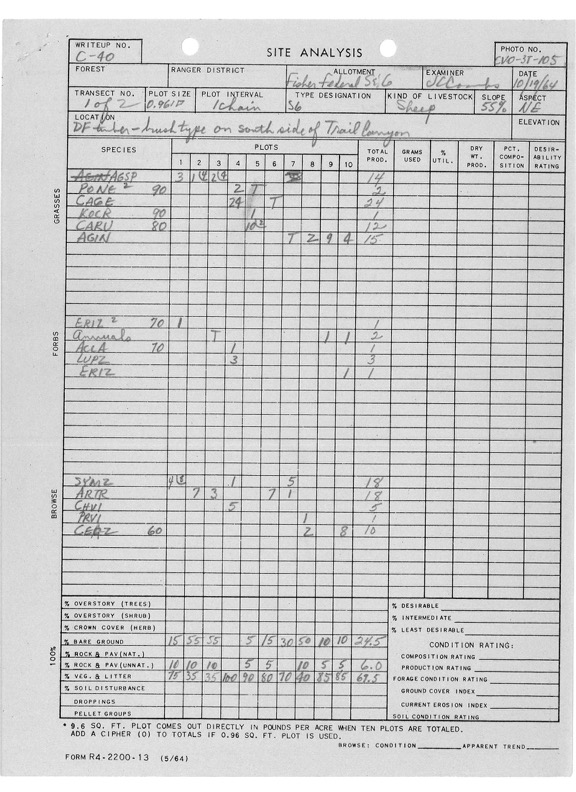 WRITEUP NO. C-40
SITE ANALYSIS
PHOTO NO. CVO-3T-105
FOREST RANGER DISTRICT ALLOTMENT Fisher Federal S&G EXAMINER JCCombs DATE 10/19/64
TRANSECT NO. 1 of 2 PLOT SIZE 0.96 PLOT INTERVAL 1 chain TYPE DESIGNATION S6 KIND OF LIVESTOCK Sheep SLOPE 55% ASPECT NE
LOCATION DF timber-brush type on south side of Trail Canyon ELEVATION
SPECIES PLOTS TOTAL PROD. GRAMS USED % UTIL. DRY WT. PROD. PCT. COMPO-SITION DESIR-ABILITY RATING
1 2 3 4 5 6 7 8 9 10
GRASSES
AGSP 3 14
PONE 2 90 2 T 2
CAGE 24 T 24
KOCR 90 1 1
CARU 80 12
AGIN T 2 9 4 15
FORBS
ERIZ 2 70 1 1
Annuals T 1 1 2
ACLA 70 1 1
LUPZ 3 3
ERIZ 1 1
BROWSE
SYMZ 1 5 18
ARTR 7 3 7 1 18
CHVI 5 5
PRVI 1 1
CEDZ 60 2 8 10
100%
% OVERSTORY (TREES)
% OVERSTORY (SHRUB)
% CROWN COVER (HERB)
% BARE GROUND 15 55 55 5 15 30 50 10 10 24.5
% ROCK & PAV(NAT.)
% ROCK & PAV(UNNAT.) 10 10 10 5 5 10 5 5 6.0
% VEG. & LITTER 75 35 35 100 90 80 70 40 85 85 69.5
% SOIL DISTURBANCE
DROPPINGS
PELLET GROUPS
% DESIRABLE
% INTERMEDIATE
% LEAST DESIRABLE
CONDITION RATING:
COMPOSITION RATING
PRODUCTION RATING
FORAGE CONDITION RATING
GROUND COVER INDEX
CURRENT EROSION INDEX
SOIL CONDITION RATING
* 9.6 SQ. FT. PLOT COMES OUT DIRECTLY IN POUNDS PER ACRE WHEN TEN PLOTS ARE TOTALED.
ADD A CIPHER (0) TO TOTALS IF 0.96 SQ. FT. PLOT IS USED.
BROWSE: CONDITION APPARENT TREND
FORM R4-2200-13 (5/64)